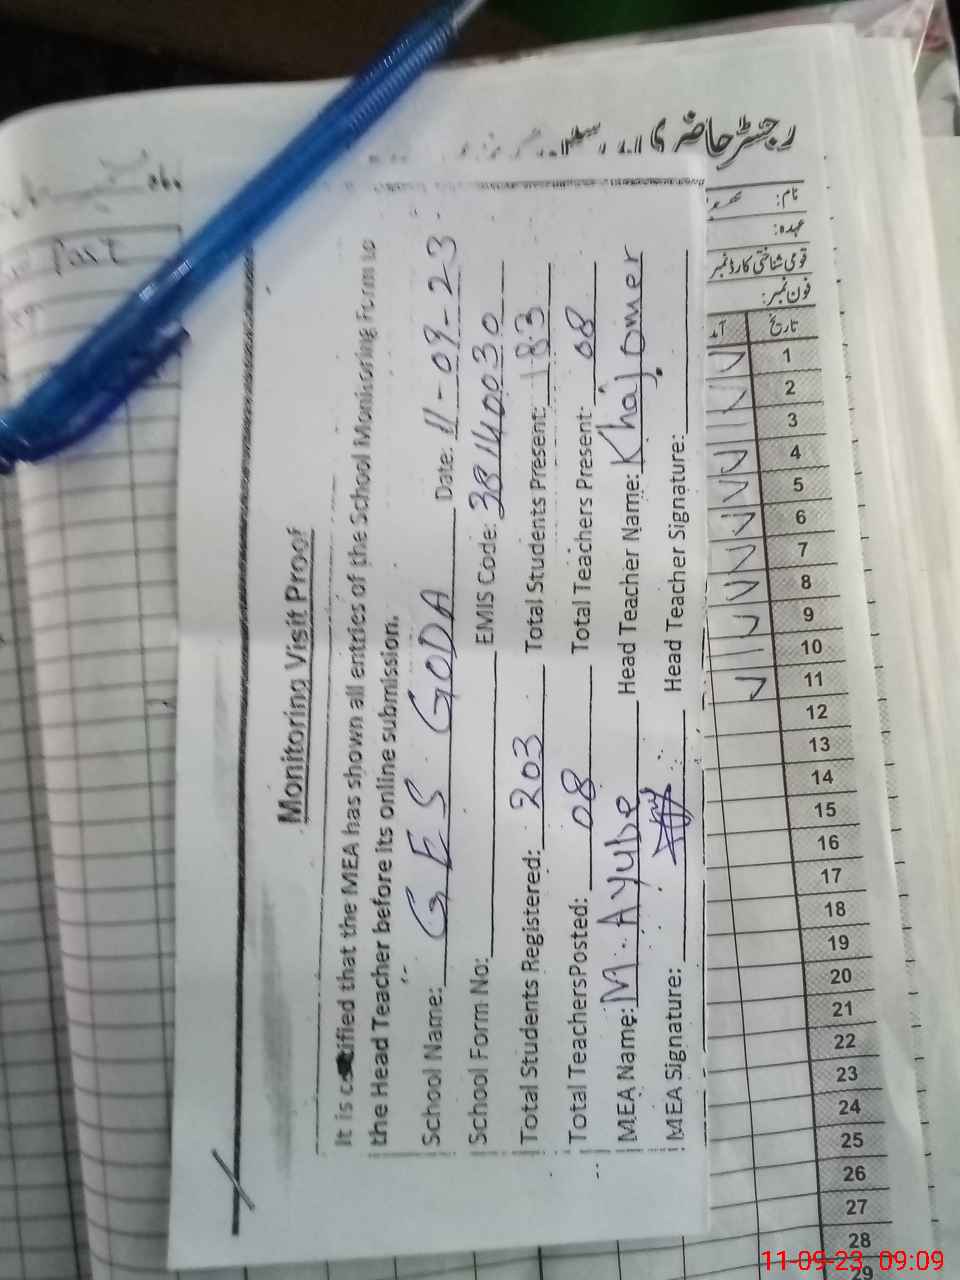 Monitoring Visit Proof
It is certified that the MEA has shown all entries of the School Monitoring Form to
the Head Teacher before its online submission.
School Name: G E S GODA Date: 11-09-23
School Form No: EMIS Code: 38140030
Total Students Registered: 203 Total Students Present: 183
Total TeachersPosted: 08 Total Teachers Present: 08
MEA Name: M. Ayube Head Teacher Name: Khaj Omer
MEA Signature: Head Teacher Signature:
رجسٹر حاضری
نام:
عہدہ:
قومی شناختی کارڈ نمبر
فون نمبر:
تاریخ آمد
1
2
3
4
5
6
7
8
9
10
11
12
13
14
15
16
17
18
19
20
21
22
23
24
25
26
27
28
29
Part
11-09-23, 09:09